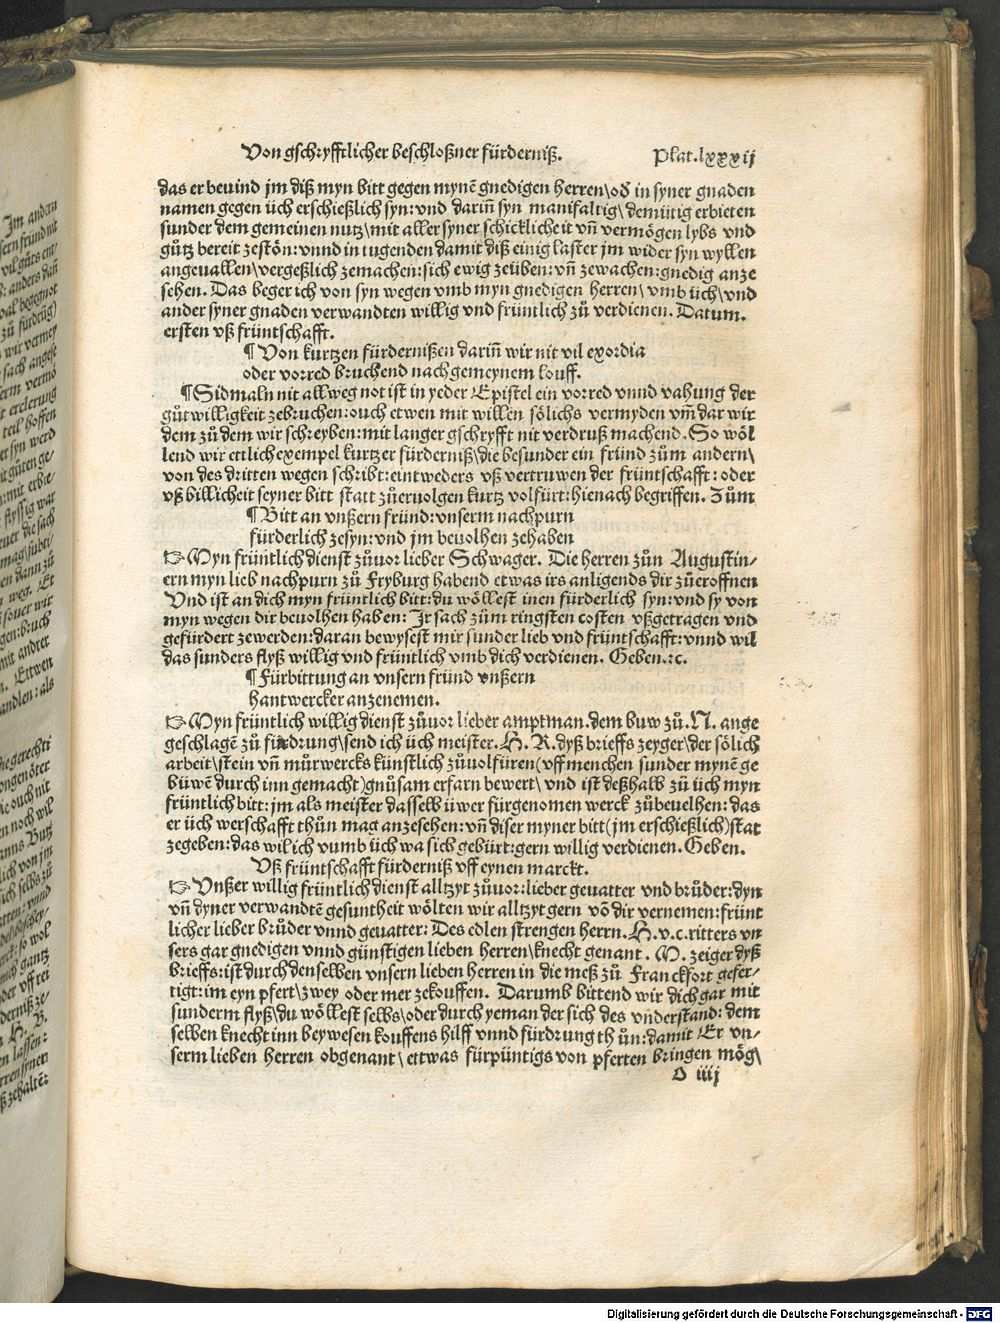 Von gschryfftlicher beschloßner fürderniß. Plat.lxxxij
das er beuind jm diß myn bitt gegen mynē gnedigen herren\od̓ in syner gnaden
namen gegen üch erschießlich syn:vnd dariñ syn manifaltig\demütig erbieten
sunder dem gemeinen nutz\mit aller syner schicklicheit vñ vermögen lybs vnd
gůtz bereit zestön:vnnd in tugenden damit diß einig laster jm wider syn wyllen
angeuallen\vergeßlich zemachen:sich ewig zeüben:vñ zewachen:gnedig anze
sehen. Das beger ich von syn wegen vmb myn gnedigen herren\vmb üch\vnd
ander syner gnaden verwandten willig vnd früntlich zů verdienen. Datum.
ersten vß früntschafft.
¶ Von kurtzen fürdernißen dariñ wir nit vil exordia
oder vorred bruchend nach gemeynem louff.
¶ Sidmaln nit allweg not ist in yeder Epistel ein vorred vnnd vahung der
gůtwilligkeit zebruchen:ouch etwen mit willen sölichs vermyden vm̄ dar wir
dem zů dem wir schreyben:mit langer gschryfft nit verdruß machend. So wöl
lend wir ettlich exempel kurtzer fürderniß\die besunder ein fründ zům andern\
von des dritten wegen schribt:eintweders vß vertruwen der früntschafft:oder
vß billicheit seyner bitt statt zůeruolgen kurtz volfürt:hienach begriffen. Züm
¶ Bitt an vnßern fründ:vnserm nachpurn
fürderlich zesyn:vnd jm beuolhen zehaben
☞ Myn früntlich dienst zůuor lieber Schwager. Die herren zůn Augustin⸗
ern myn lieb nachpurn zů Fryburg habend etwas irs anligends dir zůeroffnen
Vnd ist an dich myn früntlich bitt:du wöllest inen fürderlich syn:vnd sy von
myn wegen dir beuolhen haben: Jr sach zům ringsten costen vßgetragen vnd
gefürdert zewerden:daran bewysest mir sunder lieb vnd früntschafft:vnnd wil
das sunders flyß willig vnd früntlich vmb dich verdienen. Geben.⁊c.
¶ Fürbittung an vnsern fründ vnßern
hantwercker anzenemen.
☞ Myn früntlich willig dienst zůuor lieber amptman.dem buw zů.N. ange
geschlagē zů fürdrung\send ich üch meister. H. R. dyß brieffs zeyger\der sölich
arbeit\stein vñ mürwercks künstlich zůuolfüren(vff menchen sunder mynē ge
büwē durch inn gemacht)gnůsam erfarn bewert\ vnd ist deßhalb zů üch myn
früntlich bitt:jm als meister dasselb üwer fürgenomen werck zůbeuelhen:das
er üch werschafft thün mag anzesehen:vñ diser myner bitt(jm erschießlich)stat
zegeben:das wil ich vumb üch wa sich gebürt:gern willig verdienen. Geben.
Vß früntschafft fürderniß vff eynen marckt.
☞ Vnßer willig früntlich dienst alltzyt zůuor:lieber geuatter vnd brůder:dyn
vñ dyner verwandtē gesuntheit wölten wir alltzyt gern vō dir vernemen:frünt
licher lieber brůder vnnd geuatter: Des edlen strengen herrn. H.v.c.ritters vn
sers gar gnedigen vnnd günstigen lieben herren\knecht genant. M. zeiger dyß
brieffs:ist durch denselben vnsern lieben herren in die meß zů Franckfort gefer⸗
tigt:im eyn pfert\zwey oder mer zekouffen. Darumb bittend wir dich gar mit
sunderm flyß\du wöllest selbs\oder durch yeman der sich des vnderstand:dem
selben knecht inn beywesen kouffens hilff vnnd fürdrung thün:damit Er vn⸗
serm lieben herren obgenant\ettwas fürpüntigs von pferten bringen mög\
O iiij
Digitalisierung gefördert durch die Deutsche Forschungsgemeinschaft - DFG